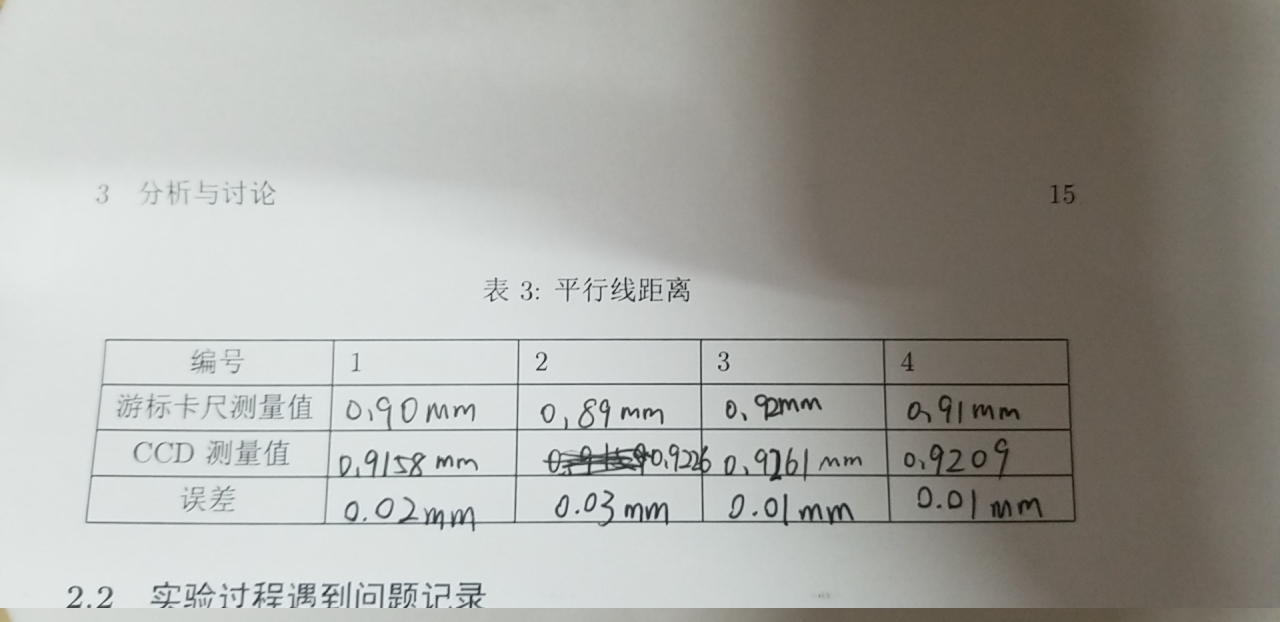 3 分析与讨论 15
表 3: 平行线距离
编号 1 2 3 4
游标卡尺测量值 0.90mm 0.89mm 0.92mm 0.91mm
CCD 测量值 0.9158mm 0.9226 0.9261mm 0.9209
误差 0.02mm 0.03mm 0.01mm 0.01mm
2.2 实验过程遇到问题记录